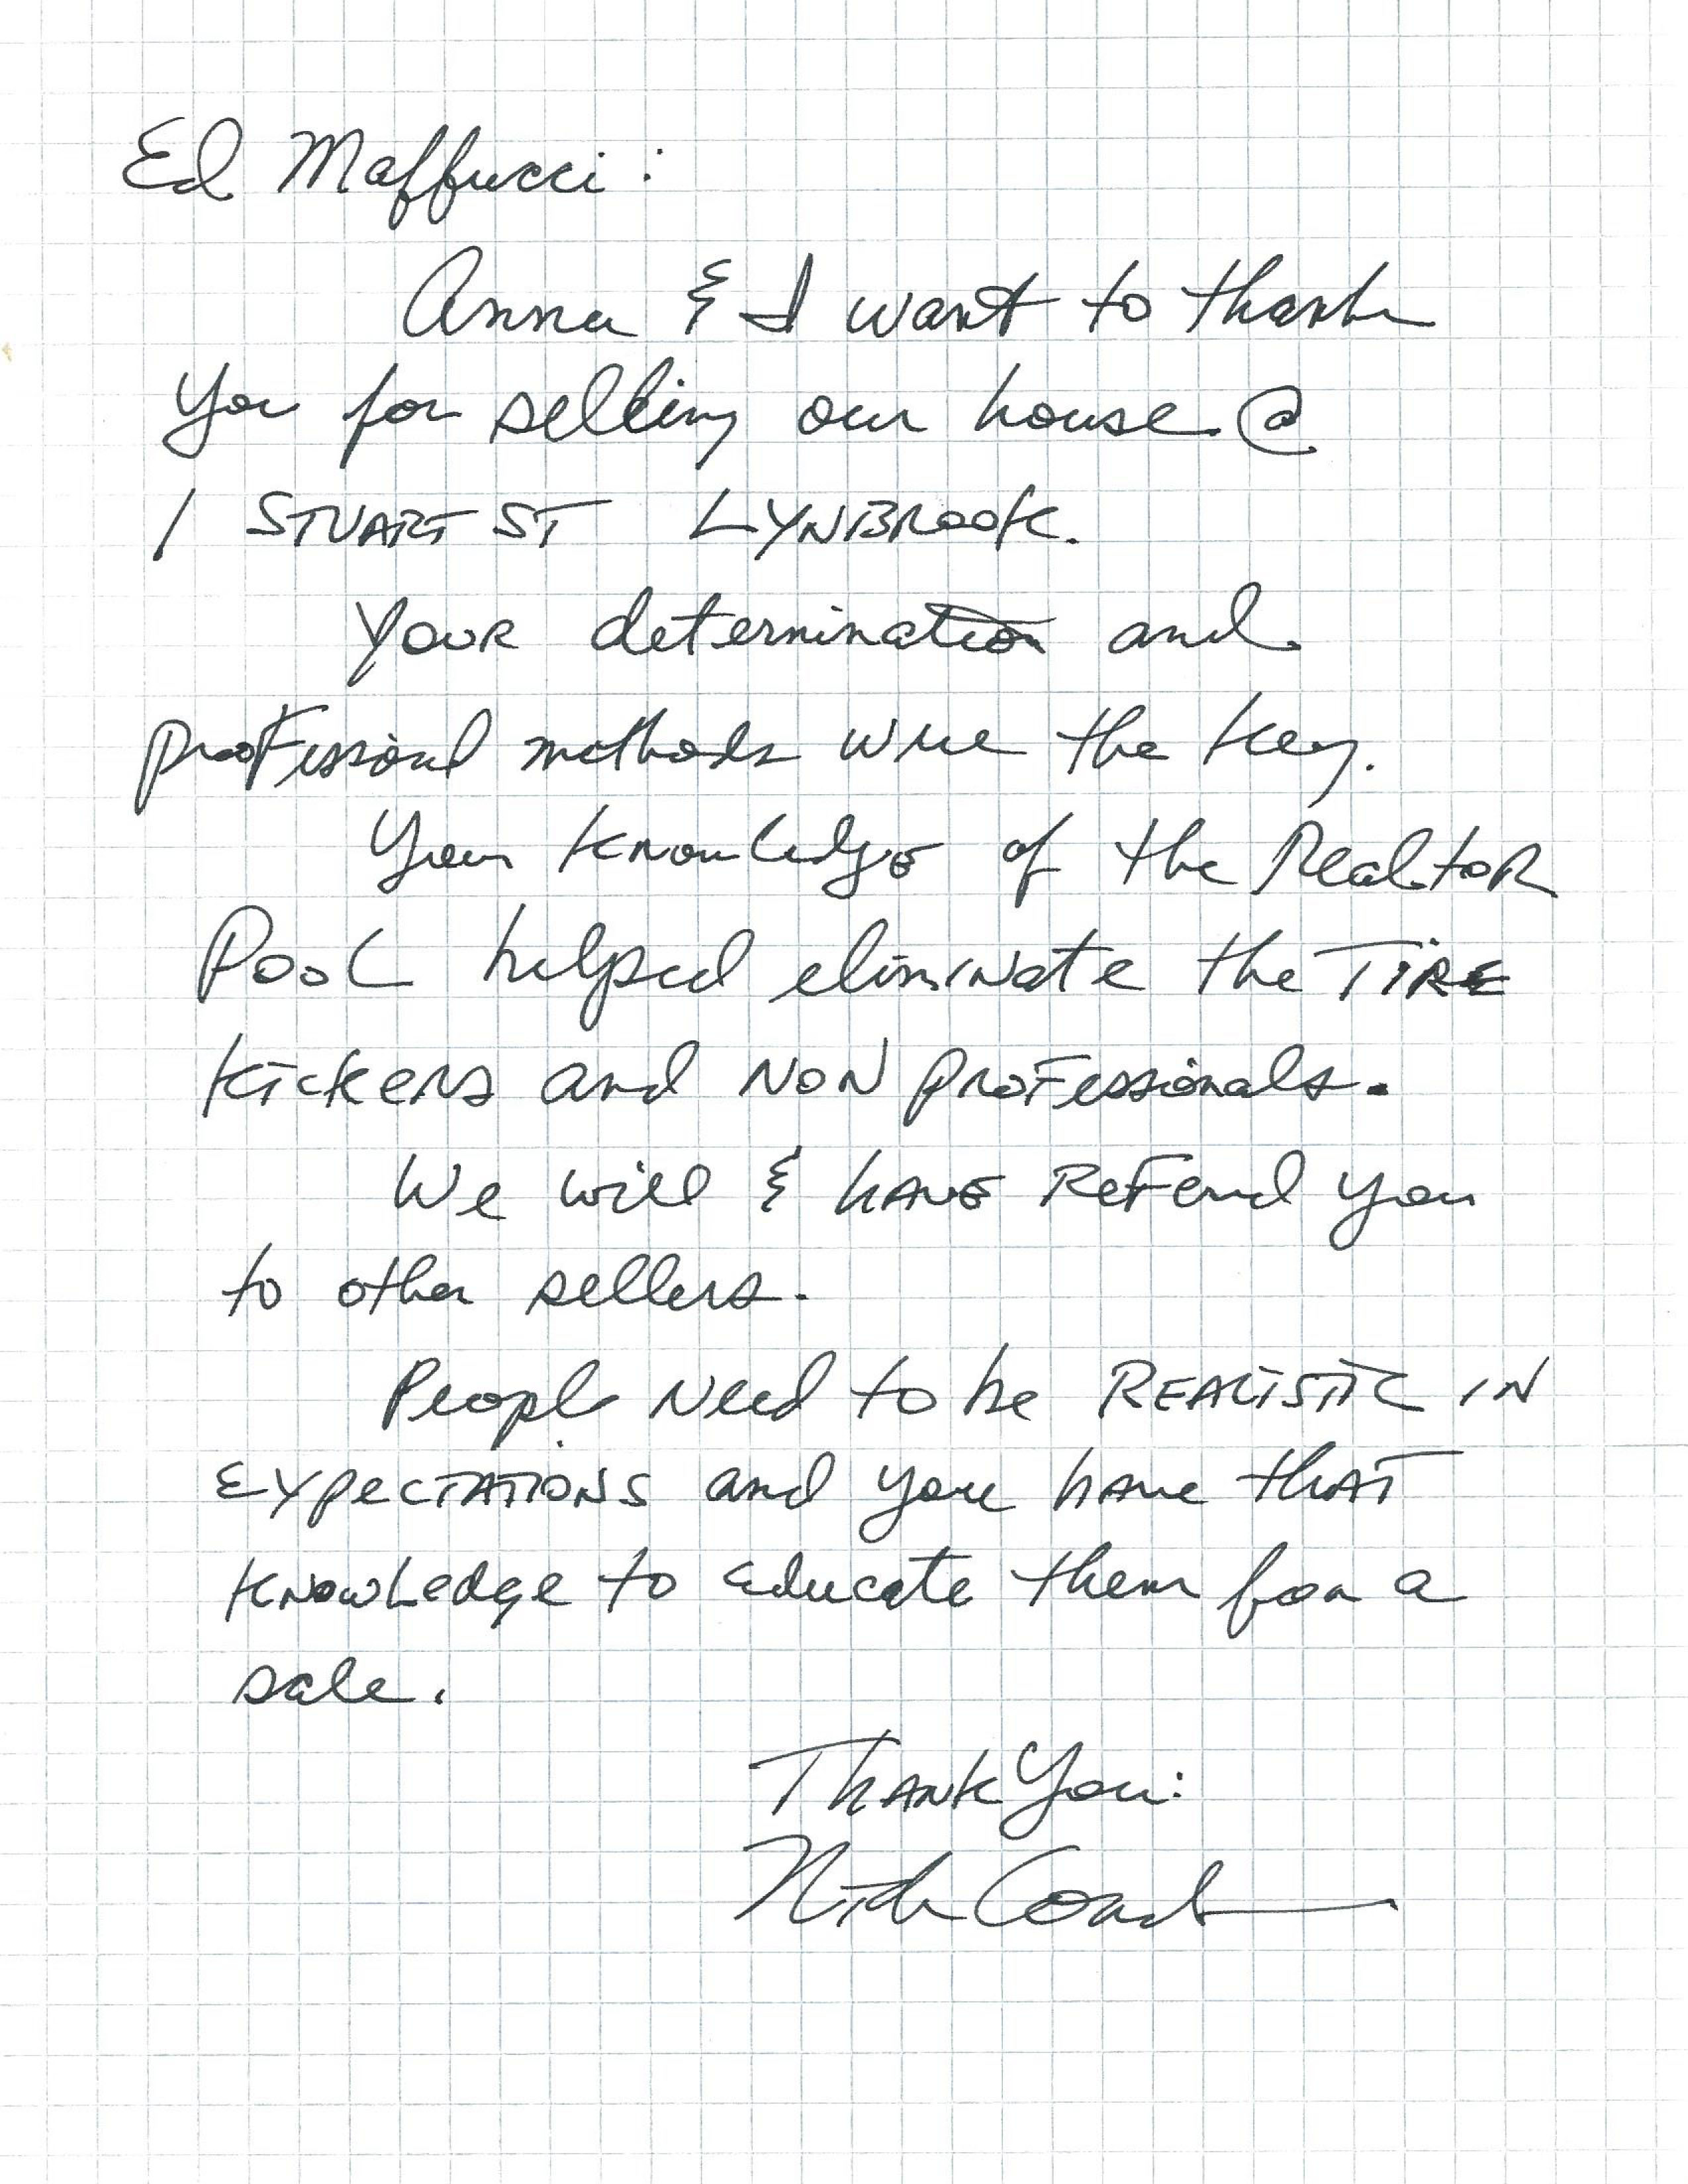 Ed Maffucci:
Anna & I want to thank
you for selling our house @
1 STUART ST LYNBROOK.
Your determination and
professional methods were the key.
Your knowledge of the Realtor
Pool helped eliminate the TIRE
kickers and NON professionals.
We will & have referred you
to other sellers.
People need to be REALISTIC IN
EXPECTATIONS and you have that
knowledge to educate them for a
sale.
Thank You:
Nick